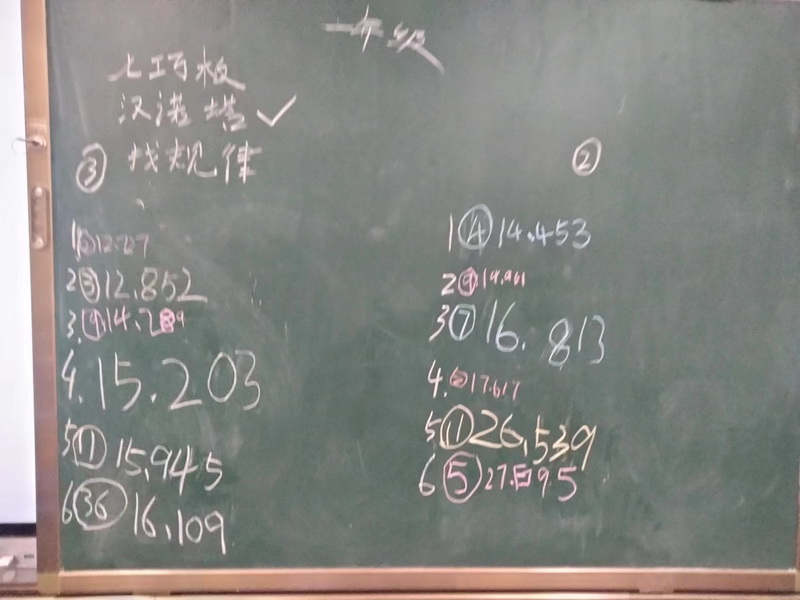 一年级
七巧板
汉诺塔✓
③ 找规律
②
1 12.727
2 ③ 12.852
3. ⑨ 14.289
4. 15.203
5 ⑪ 15.945
6 ㊱ 16.109
1 ④ 14.453
2 ⑨ 14.961
3 ⑦ 16.813
4. 17.617
5 ⑪ 26.539
6 ⑤ 27.595